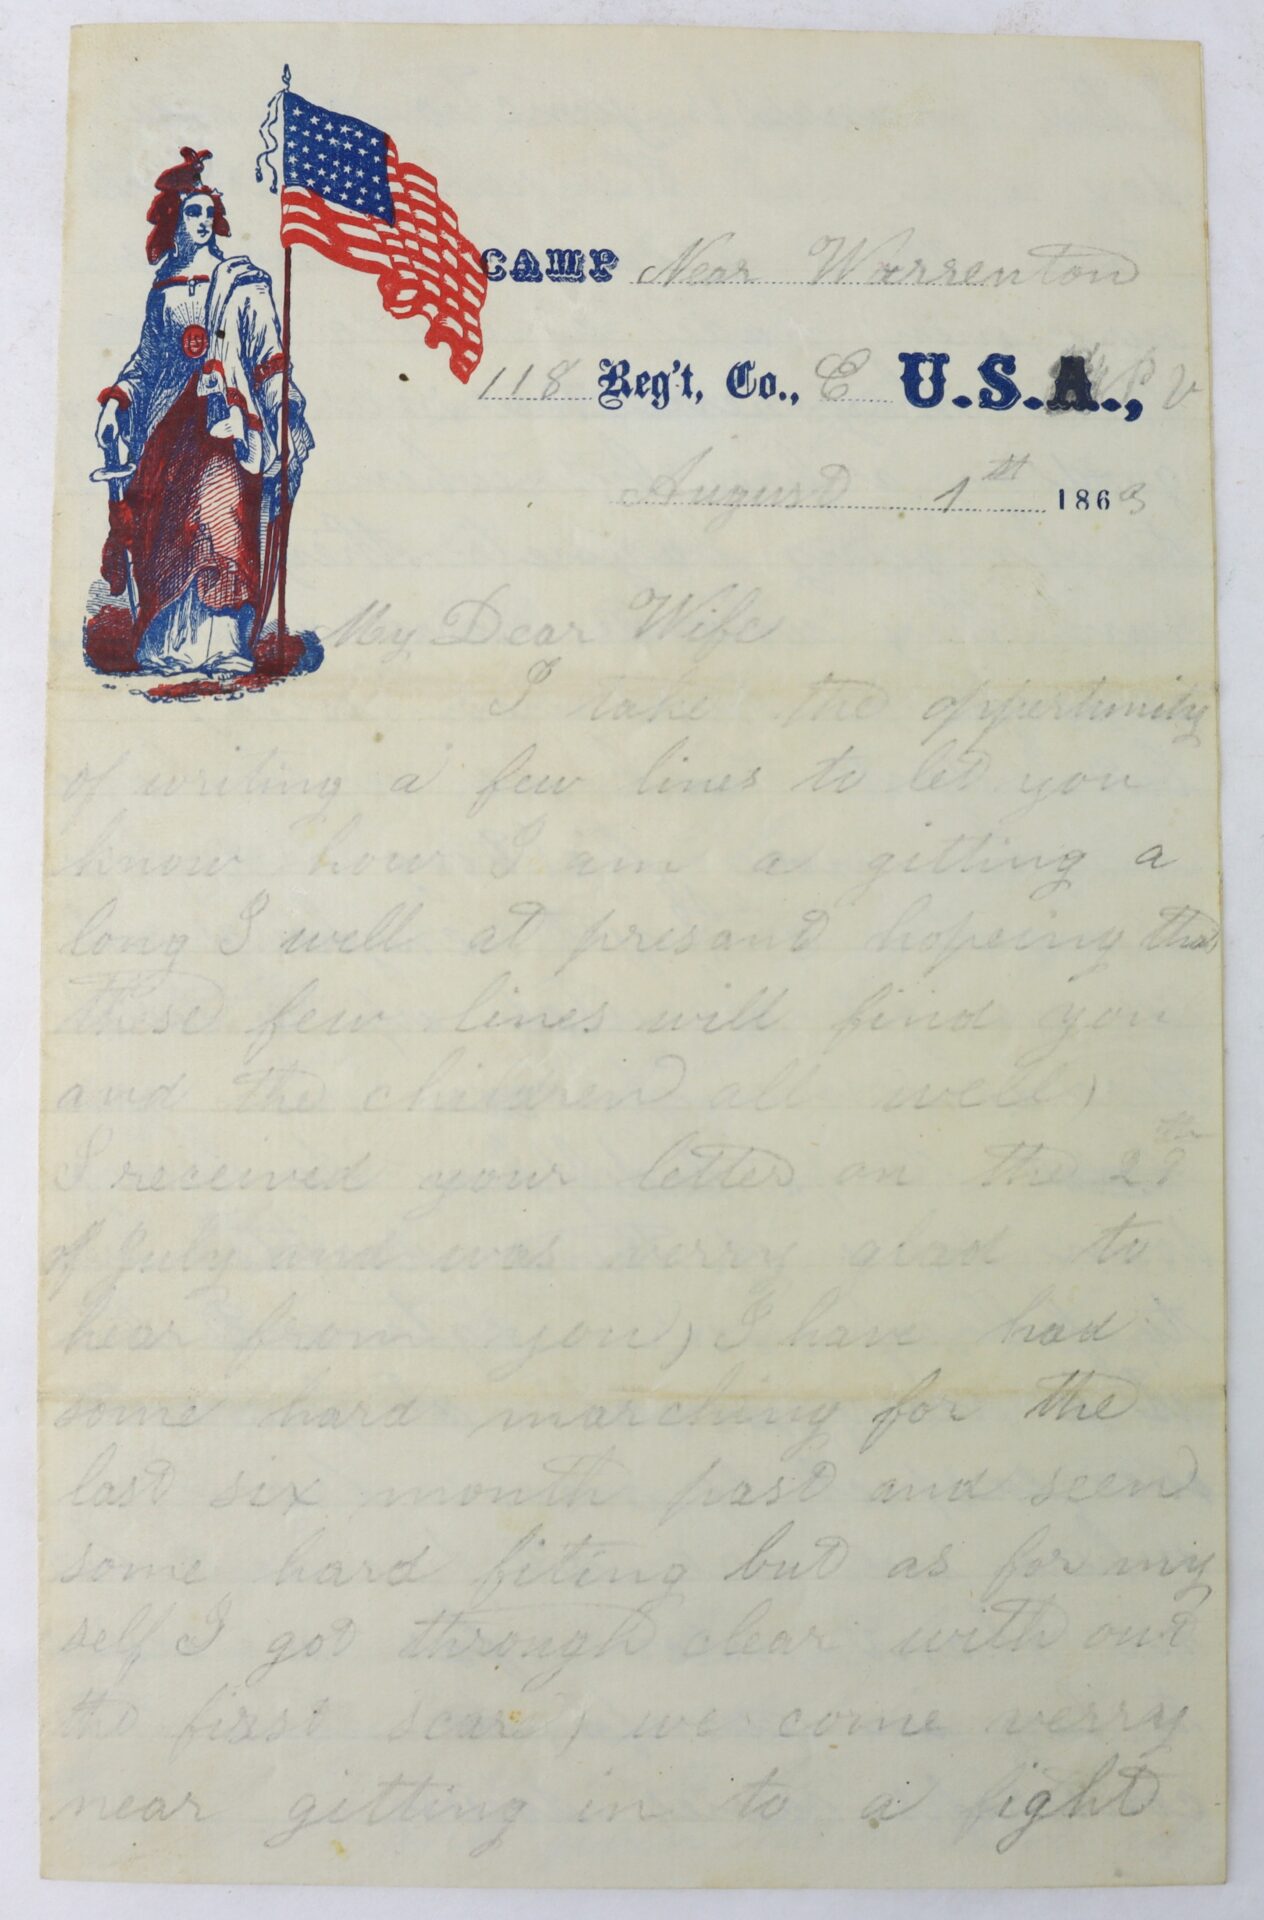 CAMP Near Warrenton
118 Reg't, Co., E U.S.A., P V
August 1st 1863
My Dear Wife
I take the oppertunity
of writing a few lines to let you
know how I am a gitting a
long I well at presant hopeing that
these few lines will find you
and the children all well,
I received your letter on the 29th
of July and was verry glad to
hear from you, I have had
some hard marching for the
last six month past and seen
some hard fiting but as for my
self I got through clear with out
the first scare, we come verry
near gitting in to a fight